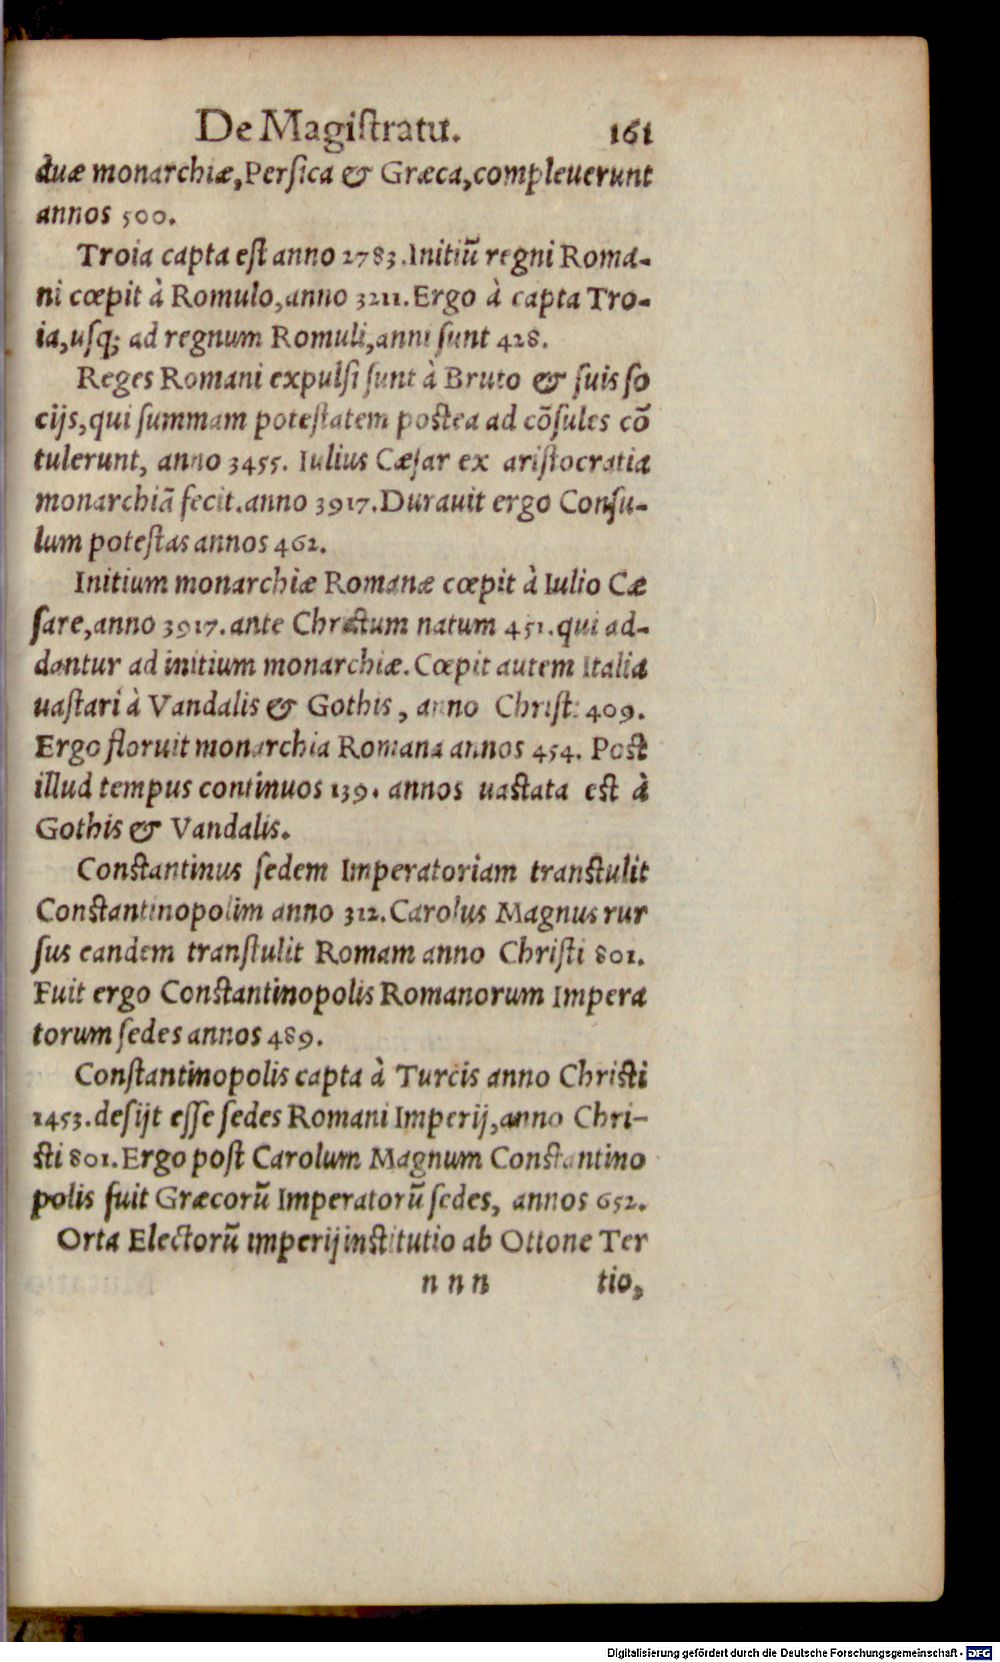 De Magiſtratu. 161
duæ monarchiæ, Perſica & Græca, compleuerunt
annos 500.
Troia capta eſt anno 2783. Initiũ regni Roma-
ni cœpit à Romulo, anno 3211. Ergo à capta Tro-
ia, uſq; ad regnum Romuli, anni ſunt 428.
Reges Romani expulſi ſunt à Bruto & ſuis ſo
cijs, qui ſummam poteſtatem poſtea ad cõſules cõ
tulerunt, anno 3455. Iulius Cæſar ex ariſtocratia
monarchiã fecit. anno 3917. Durauit ergo Conſu-
lum poteſtas annos 462.
Initium monarchiæ Romanæ cœpit à Iulio Cæ
ſare, anno 3917. ante Chriſtum natum 451. qui ad-
dantur ad initium monarchiæ. Cœpit autem Italia
uaſtari à Vandalis & Gothis, anno Chriſt: 409.
Ergo floruit monarchia Romana annos 454. Poſt
illud tempus continuos 139. annos uaſtata eſt à
Gothis & Vandalis.
Conſtantinus ſedem Imperatoriam tranſtulit
Conſtantinopolim anno 312. Carolus Magnus rur
ſus eandem tranſtulit Romam anno Chriſti 801.
Fuit ergo Conſtantinopolis Romanorum Impera
torum ſedes annos 489.
Conſtantinopolis capta à Turcis anno Chriſti
1453. deſijt eſſe ſedes Romani Imperij, anno Chri-
ſti 801. Ergo poſt Carolum Magnum Conſtantino
polis fuit Græcorũ Imperatorũ ſedes, annos 652.
Orta Electorũ imperij inſtitutio ab Ottone Ter
n n n tio,
Digitalisierung gefördert durch die Deutsche Forschungsgemeinschaft - DFG